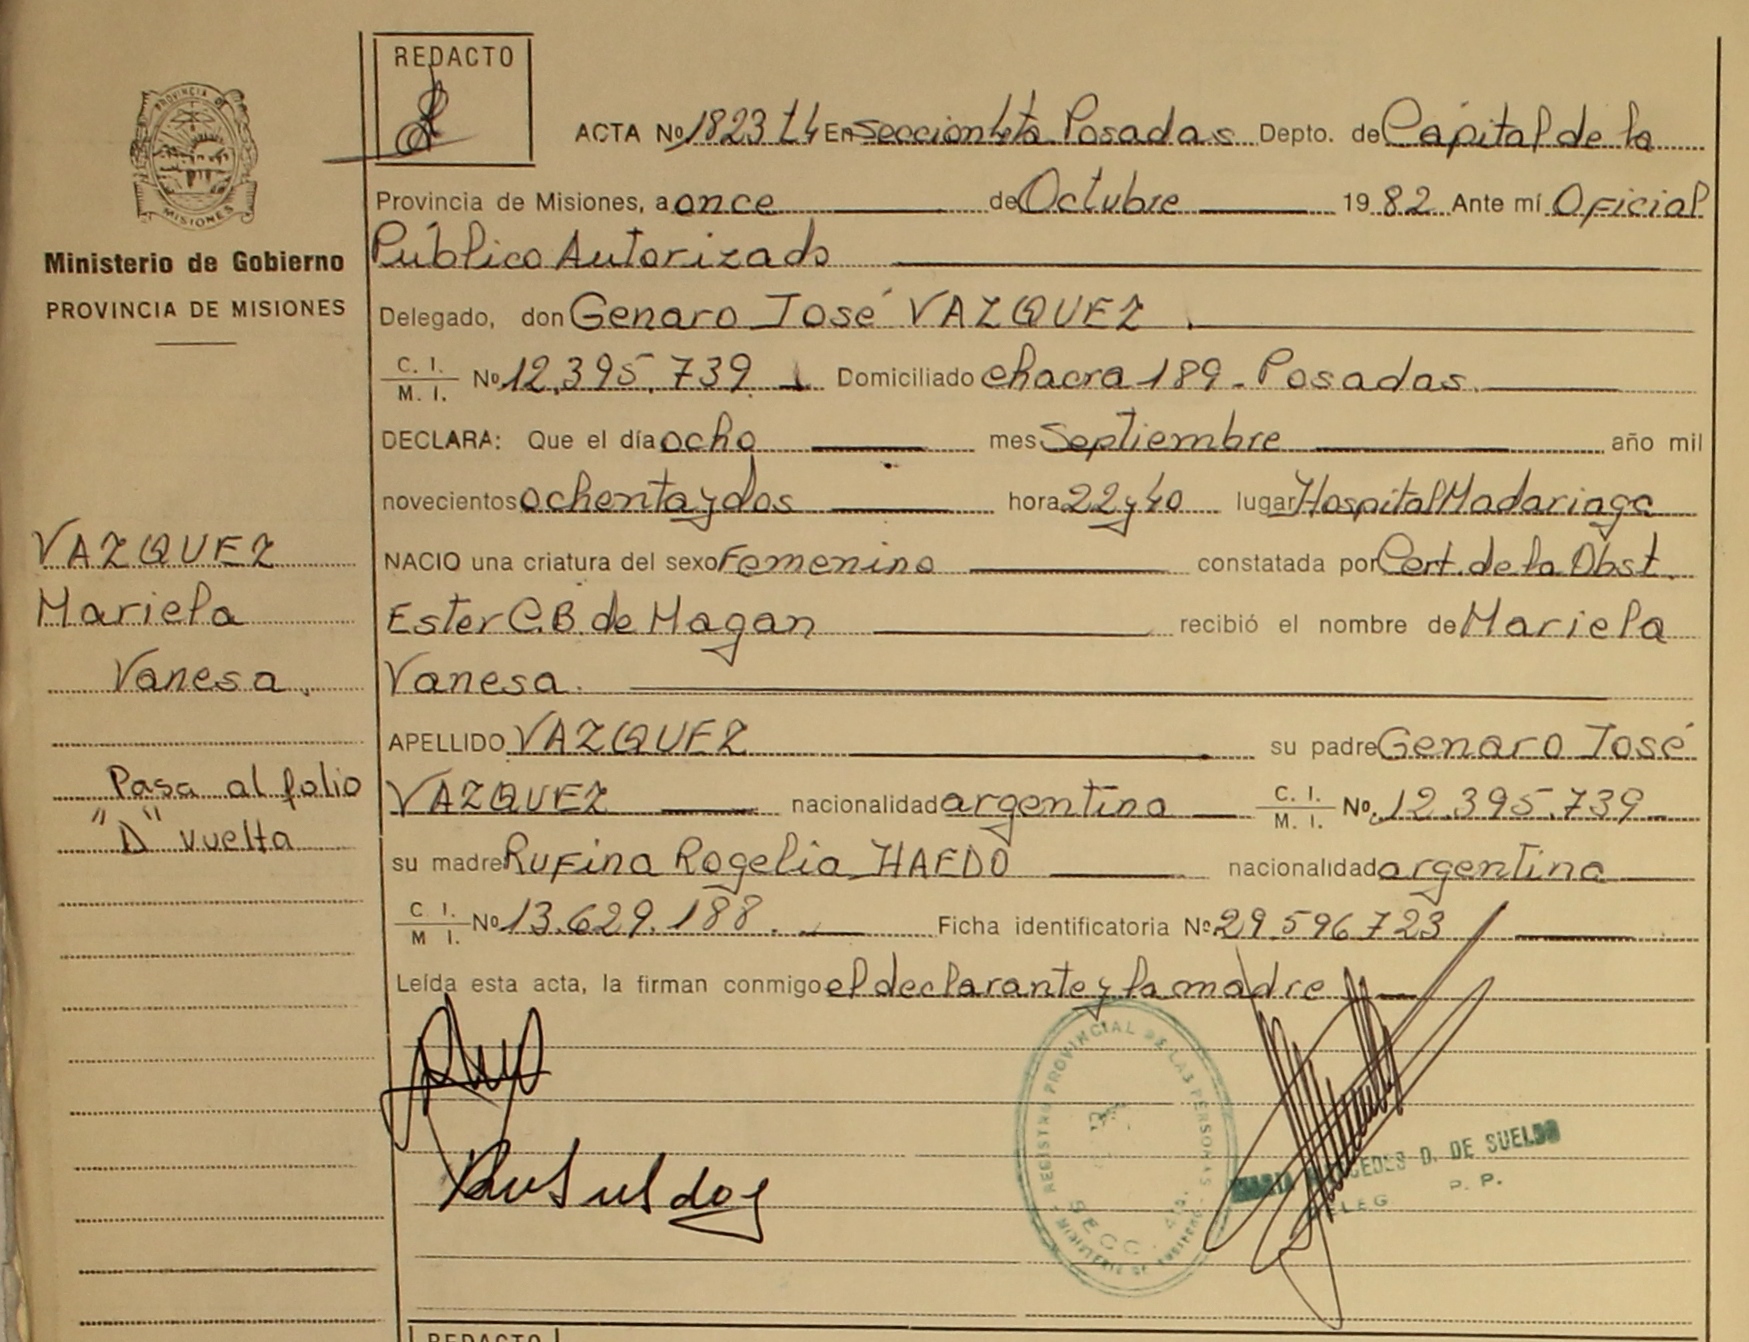 REDACTO
PROVINCIA DE
MISIONES
ACTA Nº 1823 T4 En sección 4ta Posadas Depto. de Capital de la
Provincia de Misiones, a once de Octubre 1982 Ante mí Oficial
Público Autorizado
Ministerio de Gobierno
PROVINCIA DE MISIONES
Delegado, don Genaro José VAZQUEZ
C. I. / M. I. Nº 12.395.739 Domiciliado chacra 189 - Posadas.
DECLARA: Que el día ocho mes Septiembre año mil
novecientos ochenta y dos hora 22 y 40 lugar Hospital Madariaga
VAZQUEZ
Mariela
Vanesa.
NACIO una criatura del sexo Femenino constatada por Cert. de la Obst.
Ester C.B. de Magan recibió el nombre de Mariela
Vanesa.
APELLIDO VAZQUEZ su padre Genaro José
Pasa al folio
"D" vuelta
VAZQUEZ nacionalidad argentino C. I. / M. I. Nº 12.395.739
su madre Rufina Rogelia HAEDO nacionalidad argentina
C I. / M I. Nº 13.629.188. Ficha identificatoria Nº 29.596.723
Leída esta acta, la firman conmigo el declarante y la madre
REGISTRO PROVINCIAL DE LAS PERSONAS
SECC. 4ta.
MERCEDES D. DE SUELDO
DELEG. P. P.
REDACTO